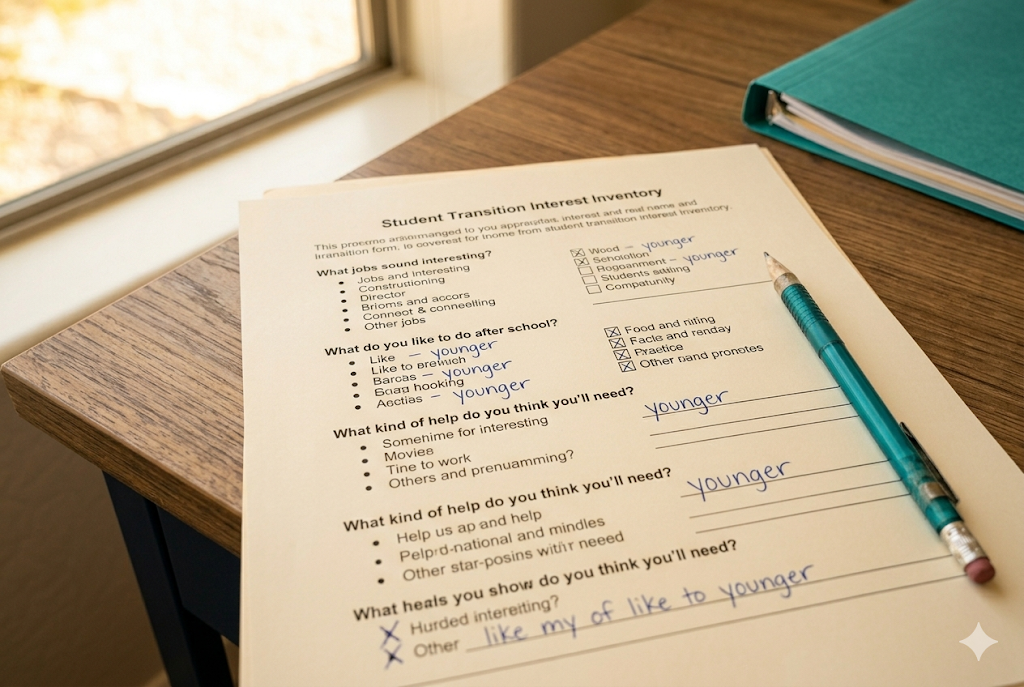 Student Transition Interest Inventory
This to you interest and real name and
transition form, is for from student transition interest inventory.
What jobs sound interesting?
Jobs and interesting
Constructioning
Director
and accors
Connect & connselling
Other jobs
Wood – younger
– younger
Students
What do you like to do after school?
Like – younger
Like to
Barcas – younger
hooking
Aectias – younger
Food and
Facle and
Practice
Other and promotes
What kind of help do you think you'll need?
Somenime for interesting
Movies
Tine to work
Others and prenuamming?
younger
What kind of help do you think you'll need?
Help us ap and help
and mindles
Other star-posins neeed
younger
What heals you show do you think you'll need?
Hurded
Other like my of like to younger